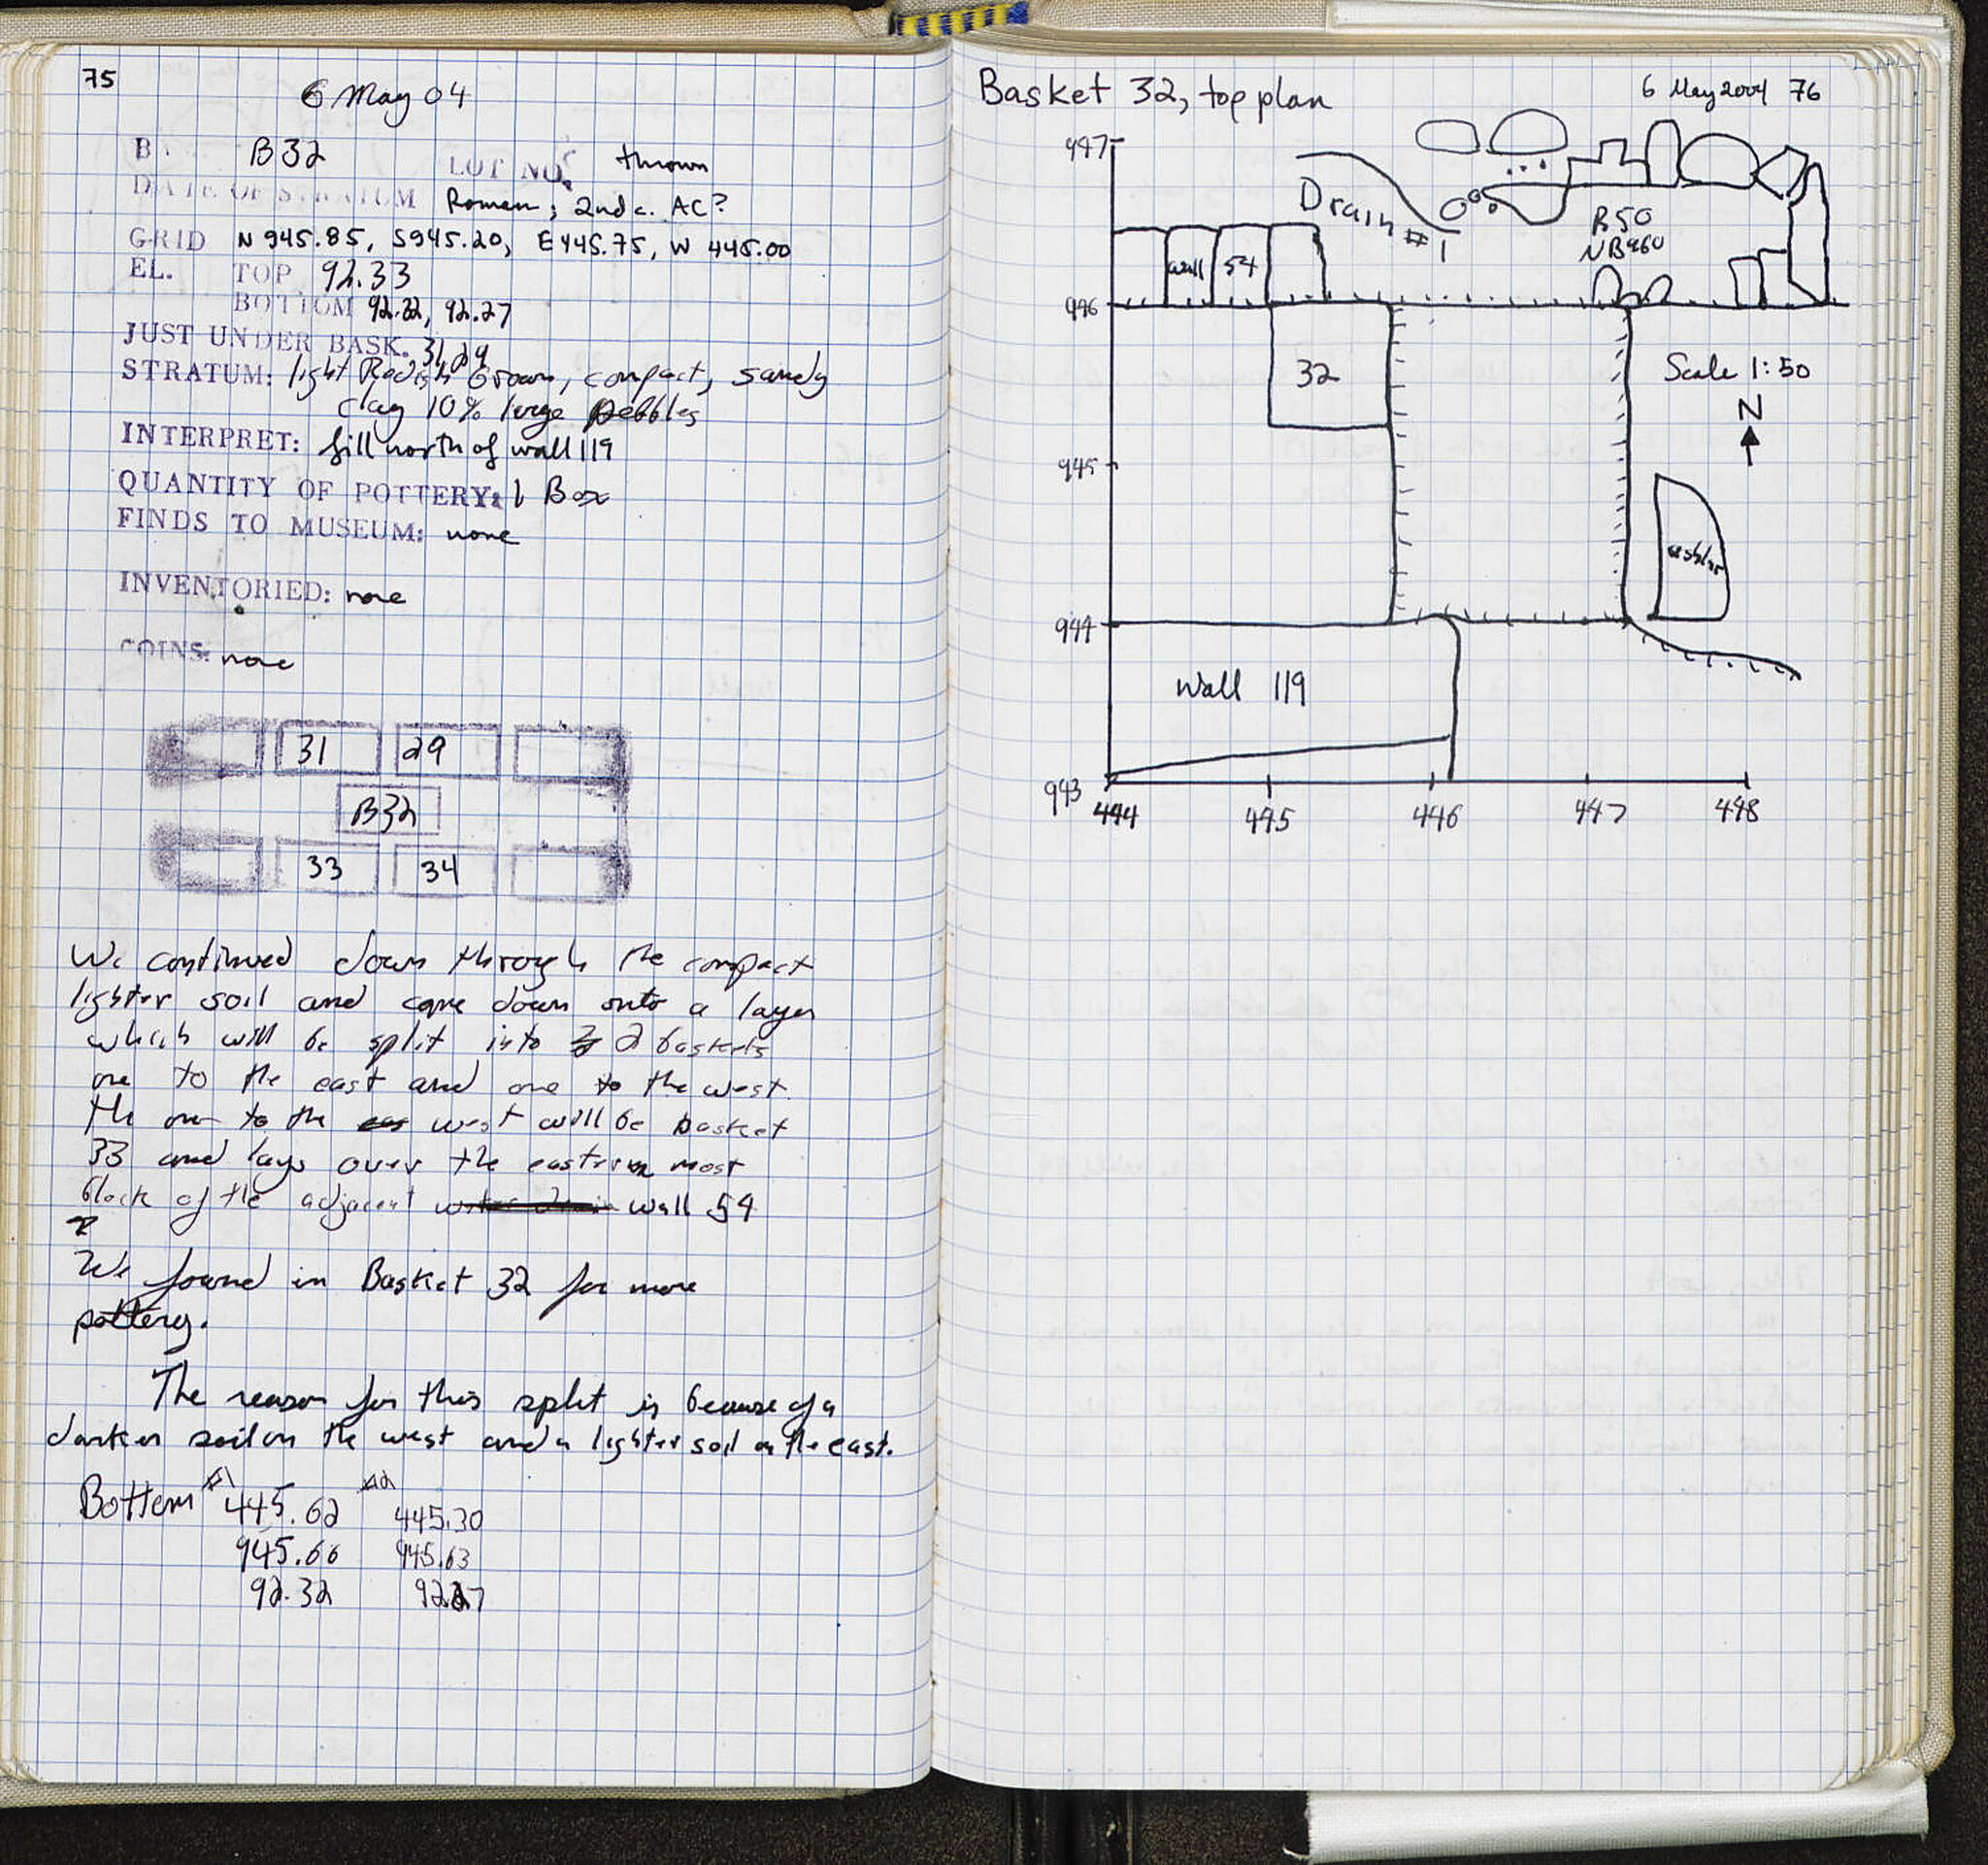 75
6 May 04
B. B32 LOT NO. thrown
DATE OF STRATUM Roman; 2nd c. AC?
GRID N 945.85, S945.20, E445.75, W 445.00
EL. TOP 92.33
BOTTOM 92.32, 92.27
JUST UNDER BASK. 31, 29
STRATUM: light Redish brown, compact, sandy
clay 10% large pebbles
INTERPRET: fill north of wall 119
QUANTITY OF POTTERY: 1 Box
FINDS TO MUSEUM: none
INVENTORIED: none
COINS: none
31 29
B32
33 34
We continued down through the compact
lighter soil and came down onto a layer
which will be split into 2 baskets
one to the east and one to the west.
the one to the west will be basket
33 and lays over the eastern most
block of the adjacent wall 54
We found in Basket 32 far more
pottery.
The reason for this split is because of a
darker soil on the west and a lighter soil on the east.
Bottom #1 #2
445.62 445.30
945.66 945.63
92.32 92.27
Basket 32, top plan 6 May 2004 76
947
Drain #1
B50
NB960
wall 54
946
32
Scale 1:50
N
945
ashlar
944
wall 119
943
444 445 446 447 448